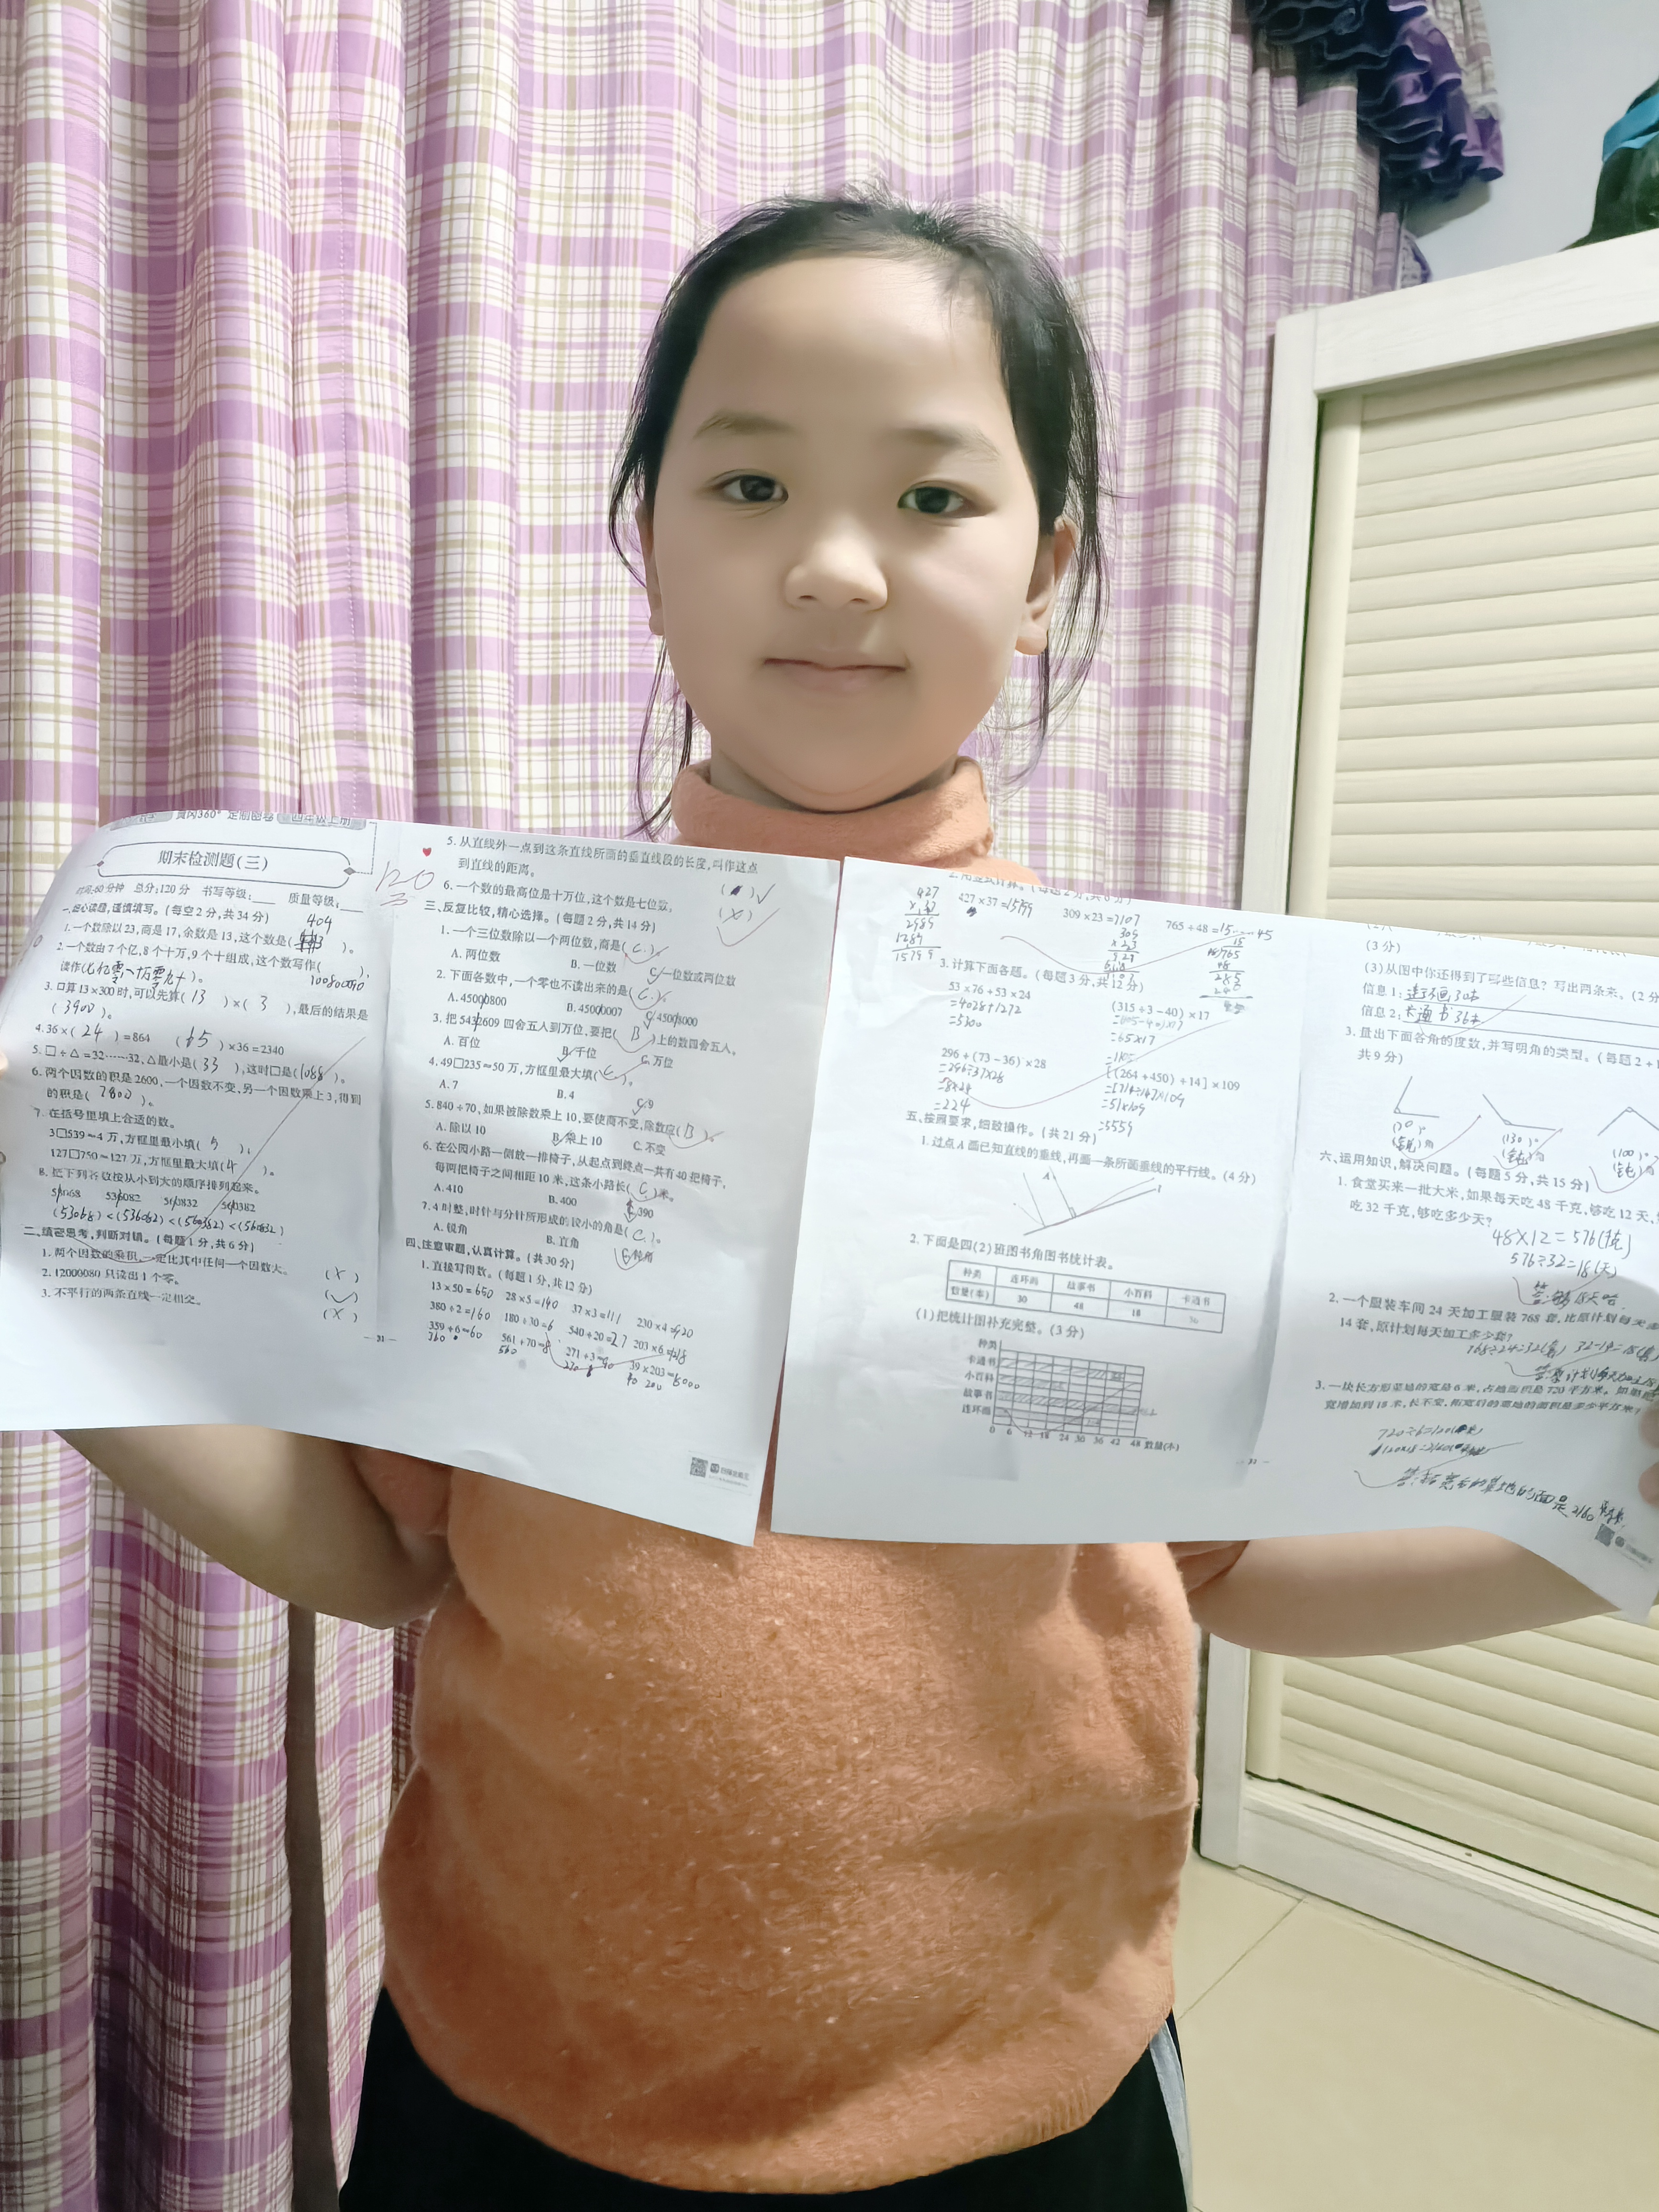 黄冈360°定制密卷 四年级上册
期末检测题(三)
120
时间:60分钟 总分:120分 书写等级:___ 质量等级:___
一、细心读题,谨慎填写。(每空2分,共34分)
404
1.一个数除以23,商是17,余数是13,这个数是( )。
2.一个数由7个亿,8个十万,9个十组成,这个数写作( ),
读作( )。
3.口算13×300时,可以先算( 13 )×( 3 ),最后的结果是
( 3900 )。
4.36×( 24 )=864 ( 65 )×36=2340
5.□÷△=32……32,△最小是( 33 ),这时□是(1088)。
6.两个因数的积是2600,一个因数不变,另一个因数乘上3,得到
的积是( 7800 )。
7.在括号里填上合适的数。
3□539≈4万,方框里最小填( 5 ),
127□750≈127万,方框里最大填( 4 )。
8.把下列各数按从小到大的顺序排列起来。
53068 536082 560832 560382
(53068)<(536082)<(560382)<(560832)
二、缜密思考,判断对错。(每题1分,共6分)
1.两个因数的乘积,一定比其中任何一个因数大。 (×)
2.12000080只读出1个零。 (✓)
3.不平行的两条直线一定相交。 (×)
— 31 —
5.从直线外一点到这条直线所画的垂直线段的长度,叫作这点
到直线的距离。
6.一个数的最高位是十万位,这个数是七位数。 (×)
三、反复比较,精心选择。(每题2分,共14分)
1.一个三位数除以一个两位数,商是( C )。
A.两位数 B.一位数 C.一位数或两位数
2.下面各数中,一个零也不读出来的是( C )。
A.45000800 B.45000007 C.45008000
3.把5432609四舍五入到万位,要把( B )上的数四舍五入。
A.百位 B.千位 C.万位
4.49□235≈50万,方框里最大填( C )。
A.7 B.4 C.9
5.840÷70,如果被除数乘上10,要使商不变,除数应( B )。
A.除以10 B.乘上10 C.不变
6.在公园小路一侧放一排椅子,从起点到终点一共有40把椅子,
每两把椅子之间相距10米,这条小路长( C )米。
A.410 B.400 C.390
7.4时整,时针与分针所形成的较小的角是( C )。
A.锐角 B.直角 C.钝角
四、注意审题,认真计算。(共30分)
1.直接写得数。(每题1分,共12分)
13×50=650 28×5=140 37×3=111 230×4=920
380÷2=160 180÷30=6 540÷20=27 203×6=1218
359÷6≈60 561÷70≈8 271÷3≈90 39×203≈8000
360 560 270 40 200
2.用竖式计算。(每题2分,共6分)
427×37=15799 309×23=7107 765÷48=15……45
427
×37
2989
1281
15799
309
×23
927
618
7107
3.计算下面各题。(每题3分,共12分)
53×76+53×24 (315÷3-40)×17
=4028+1272 =(105-40)×17
=5300 =65×17
=1105
296÷(73-36)×28 [(264+450)÷14]×109
=296÷37×28 =
=8×28 =51×109
=224 =5559
五、按照要求,细致操作。(共21分)
1.过点A画已知直线的垂线,再画一条所画垂线的平行线。(4分)
A
2.下面是四(2)班图书角图书统计表。
种类 连环画 故事书 小百科 卡通书
数量(本) 30 48 18 36
(1)把统计图补充完整。(3分)
种类
卡通书
小百科
故事书
连环画
0 6 12 18 24 30 36 42 48 数量(本)
(3分)
(3)从图中你还得到了哪些信息?写出两条来。(2分
信息1:连环画30本
信息2:卡通书36本
3.量出下面各角的度数,并写明角的类型。(每题2+1
共9分)
(70)° (130)° (100)°
( )角 (钝)角 (钝)角
六、运用知识,解决问题。(每题5分,共15分)
1.食堂买来一批大米,如果每天吃48千克,够吃12天,
吃32千克,够吃多少天?
48×12=576(千克)
576÷32=18(天)
答:够 18天吃.
2.一个服装车间24天加工服装768套,比原计划每天多
14套,原计划每天加工多少套?
768÷24=32(套) 32-14=18(套)
答:原计划每天加工18
3.一块长方形菜地的宽是6米,占地面积是720平方米。如果把
宽增加到18米,长不变,拓宽后的菜地的面积是多少平方米?
720÷6=120(米)
120×18=2160(平方米)
答:拓宽后的菜地的面是2160平方米.